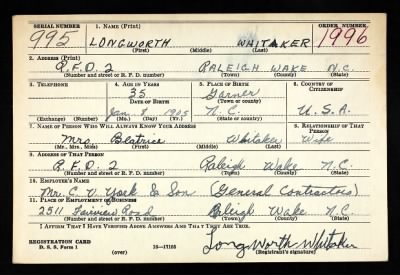 SERIAL NUMBER 1. NAME (Print) ORDER NUMBER
995 LONGWORTH WHITAKER 1996
(First) (Middle) (Last)
2. ADDRESS (Print)
R.F.D. 2 RALEIGH WAKE N.C.
(Number and street or R. F. D. number) (Town) (County) (State)
3. TELEPHONE 4. AGE IN YEARS 5. PLACE OF BIRTH 6. COUNTRY OF CITIZENSHIP
35 Garner
DATE OF BIRTH (Town or county)
Jan. 1905 N.C. U.S.A.
(Exchange) (Number) (Mo.) (Day) (Yr.) (State or country)
7. NAME OF PERSON WHO WILL ALWAYS KNOW YOUR ADDRESS 8. RELATIONSHIP OF THAT PERSON
Mrs Beatrice Whitaker Wife
(Mr., Mrs., Miss) (First) (Middle) (Last)
9. ADDRESS OF THAT PERSON
R.F.D. 2 Raleigh Wake N.C.
(Number and street or R. F. D. number) (Town) (County) (State)
10. EMPLOYER'S NAME
Mr. C. V. York & Son (General Contractors)
11. PLACE OF EMPLOYMENT OR BUSINESS
2511 Fairview Road Raleigh Wake N.C.
(Number and street or R. F. D. number) (Town) (County) (State)
I AFFIRM THAT I HAVE VERIFIED ABOVE ANSWERS AND THAT THEY ARE TRUE.
Longworth Whitaker
REGISTRATION CARD
D. S. S. Form 1 (over) 16—17105 (Registrant's signature)